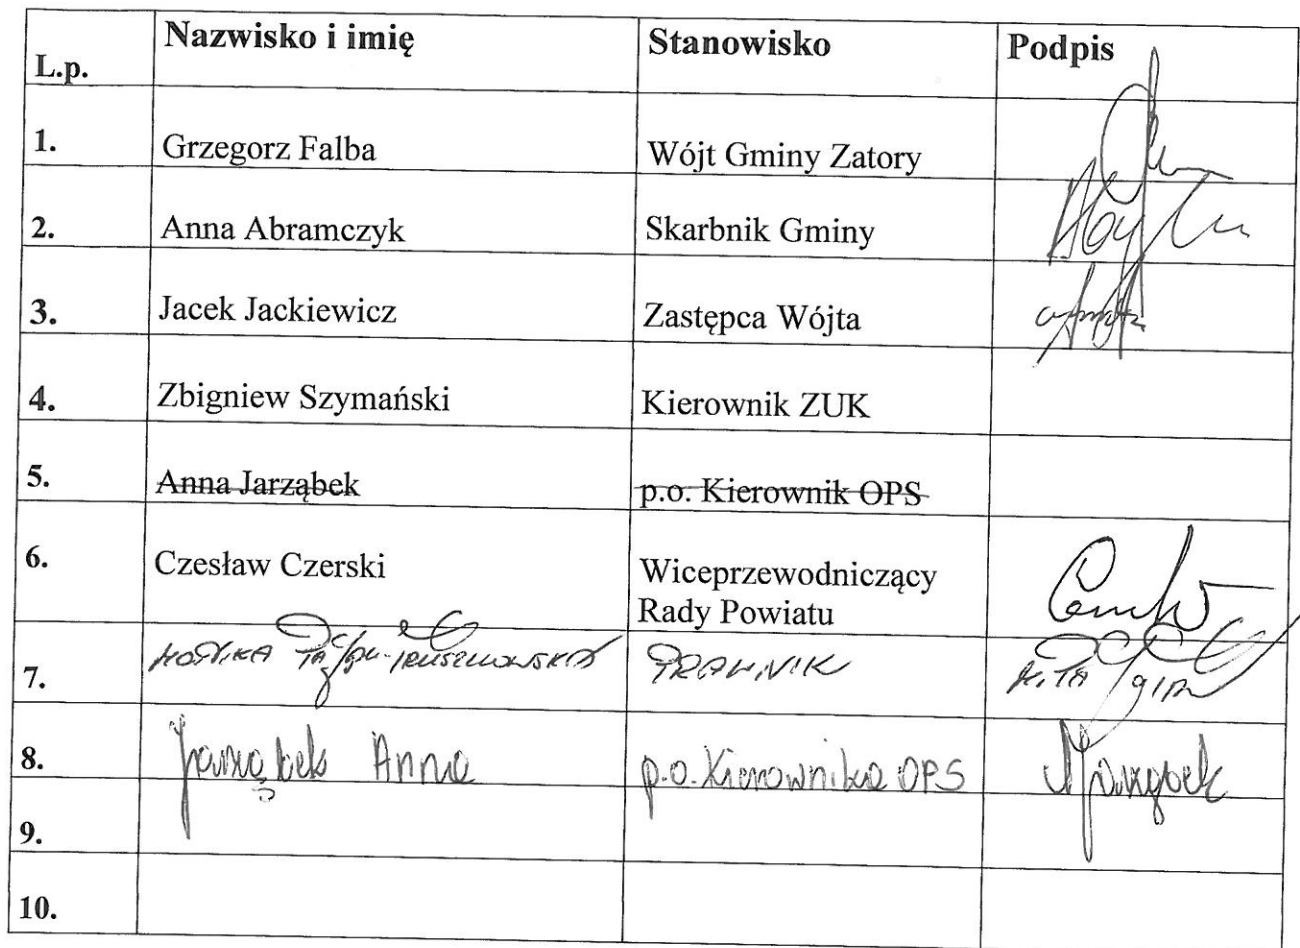 L.p. Nazwisko i imię Stanowisko Podpis
1. Grzegorz Falba Wójt Gminy Zatory
2. Anna Abramczyk Skarbnik Gminy
3. Jacek Jackiewicz Zastępca Wójta
4. Zbigniew Szymański Kierownik ZUK
5. Anna Jarząbek p.o. Kierownik OPS
6. Czesław Czerski Wiceprzewodniczący
Rady Powiatu
7. PRAWNIK
8. Jarząbek Anna p.o. Kierownika OPS AJarząbek
9.
10.